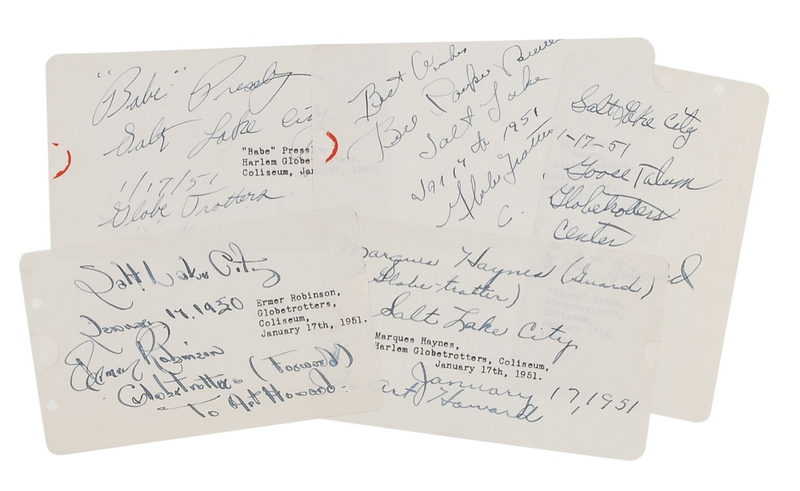 "Babe" Pressley
Salt Lake City
1/17/51
Globe Trotters
"Babe" Press
Harlem Globe
Coliseum, Ja
Best Wishes
Bill
Salt Lake
Jan 17th 1951
Globe Trotters
C.
Salt Lake City
1-17-51
Goose Tatum
Globetrotters
Center
Salt Lake City
January 17, 1950
Ermer Robinson
Globetrotters (Forward)
To Art Howard
Ermer Robinson,
Globetrotters,
Coliseum,
January 17th, 1951.
Marques Haynes (Guard)
Globe-trotter)
Salt Lake City
Marques Haynes,
Harlem Globetrotters, Coliseum,
January 17th, 1951.
January 17, 1951
Art Howard